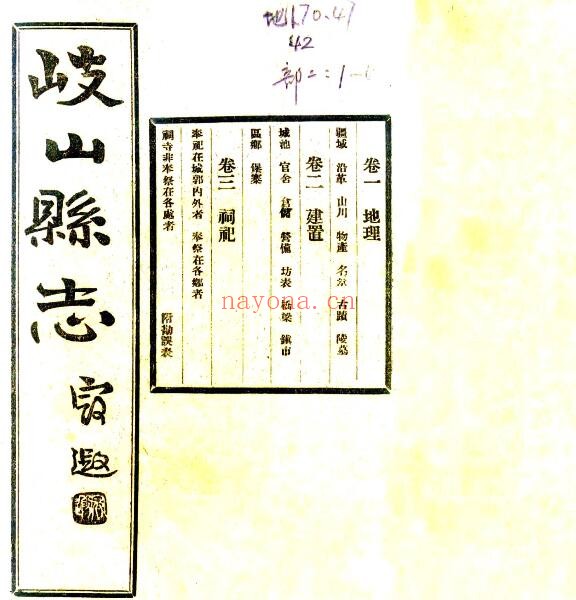 地170.47
42
岐山縣志
卷一 地理
疆域 沿革 山川 物產 名宦 古蹟 陵墓
卷二 建置
城池 官舍 倉儲 營備 坊表 橋梁 鎮市
區鄉 保寨
卷三 祠祀
奉祀在城郭內外者 奉祭在各鄉者
祠寺非奉祭在各處者
附勘誤表
nayona.cn